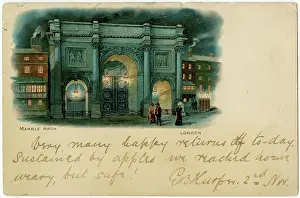 MARBLE ARCH
LONDON
Very many happy returns of to-day.
Sustained by apples we reached home
weary, but safe! 2nd Nov.